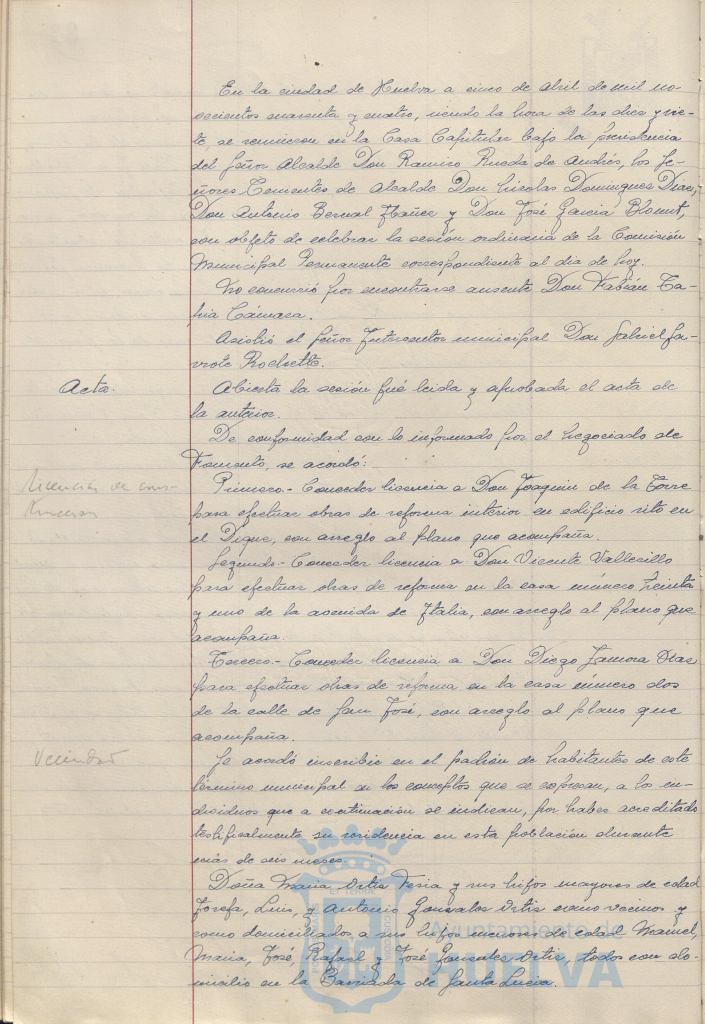 En la ciudad de Huelva a cinco de Abril de mil no-
vecientos cuarenta y cuatro, siendo la hora de las diez y sie-
te, se reunieron en la Casa Capitular bajo la presidencia
del Señor Alcalde Don Ramiro Rueda de Andrés, los Se-
ñores Tenientes de Alcalde Don Nicolas Dominguez Diaz,
Don Antonio Bernal Ibañez y Don José Garcia
con objeto de celebrar la sesión ordinaria de la Comisión
Municipal Permanente correspondiente al dia de hoy.
No concurrió por encontrarse ausente Don Fabián Ta-
bia Cámara.
Asistió el Señor Interventor municipal Don Gabriel Ga-
rrote
Acta.
Abierta la sesión fué leida y aprobada el acta de
la anterior.
De conformidad con lo informado por el Negociado de
Fomento, se acordó:
Licencias de cons-
truccion
Primero.- Conceder licencia a Don Joaquin de la Torre
para efectuar obras de reforma interior en edificio sito en
el Dique, con arreglo al plano que acompaña.
Segundo- Conceder licencia a Don Vicente Vallecillo
para efectuar obras de reforma en la casa número treinta
y uno de la avenida de Italia, con arreglo al plano que
acompaña.
Tercero.- Conceder licencia a Don Diego Zamora Diaz
para efectuar obras de reforma en la casa número dos
de la calle de San José, con arreglo al plano que
acompaña.
Vecindad
Se acordó inscribir en el padrón de habitantes de este
término municipal en los conceptos que se expresan, a los in-
dividuos que a continuación se indican, por haber acreditado
testificalmente su residencia en esta población durante
más de seis meses.
Doña Maria Ortiz y sus hijos mayores de edad
Josefa, Luis, y Antonio Gonzalez Ortiz como vecinos y
como domiciliados a sus hijos menores de edad Manuel,
Maria, José, Rafael y José Gonzalez Ortiz, todos con do-
micilio en la Barriada de Santa Lucia.
Ayuntamiento de
HUELVA